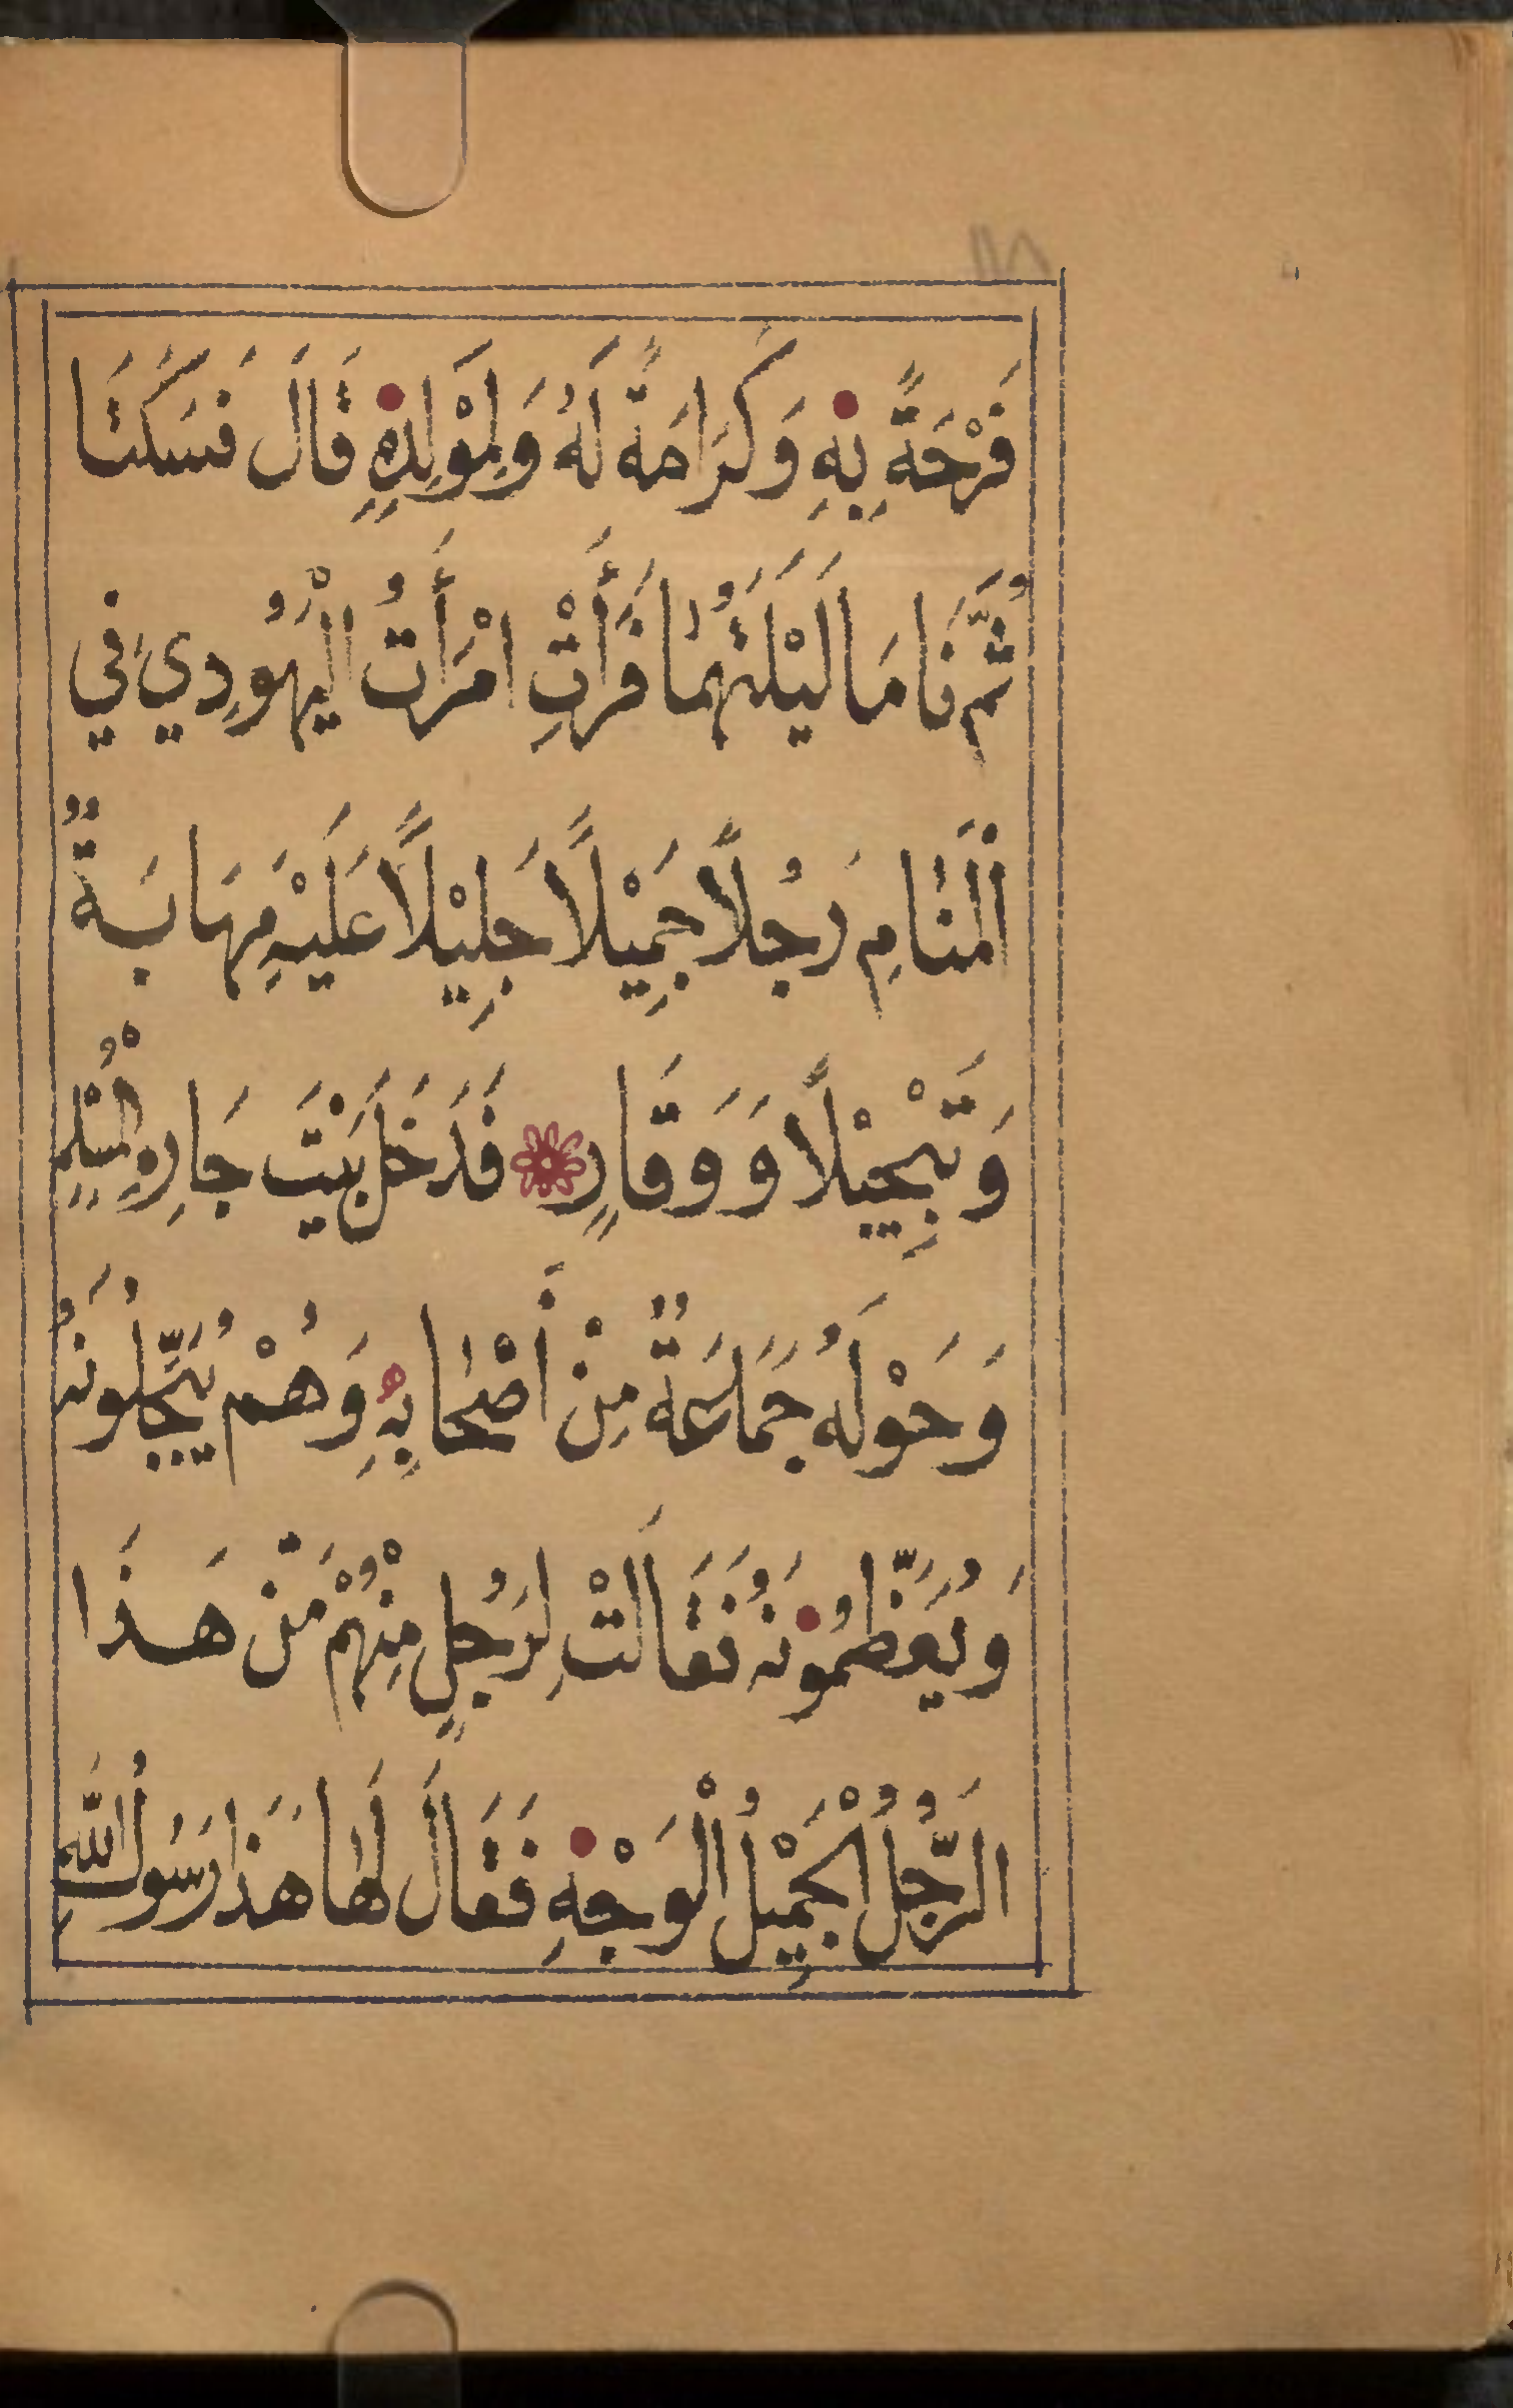 فَرْحَةً بِهِ وَكَرَامَةً لَهُ وَلِمَوْلِدِهِ قَالَ فَسَكَتَا
ثُمَّ نَامَا لَيْلَتَهُمَا فَرَأَتِ امْرَأَتُ الْيَهُودِي فِي
الْمَنَامِ رَجُلاً جَمِيْلاً جَلِيْلاً عَلَيْهِ مَهَابَةٌ
وَتَبْجِيْلاً وَوَقَارٍ فَدَخَلَ بَيْتَ جَارِهِ الْمُسْلِمِ
وَحَوْلَهُ جَمَاعَةٌ مِنْ أَصْحَابِهِ وَهُمْ يُبَجِّلُونَهُ
وَيُعَظِّمُونَهُ فَقَالَتْ لِرَجُلٍ مِنْهُمْ مَنْ هَذَا
الرَّجُلُ الْجَمِيْلُ الْوَجْهِ فَقَالَ لَهَا هَذَا رَسُولُ اللَّهِ